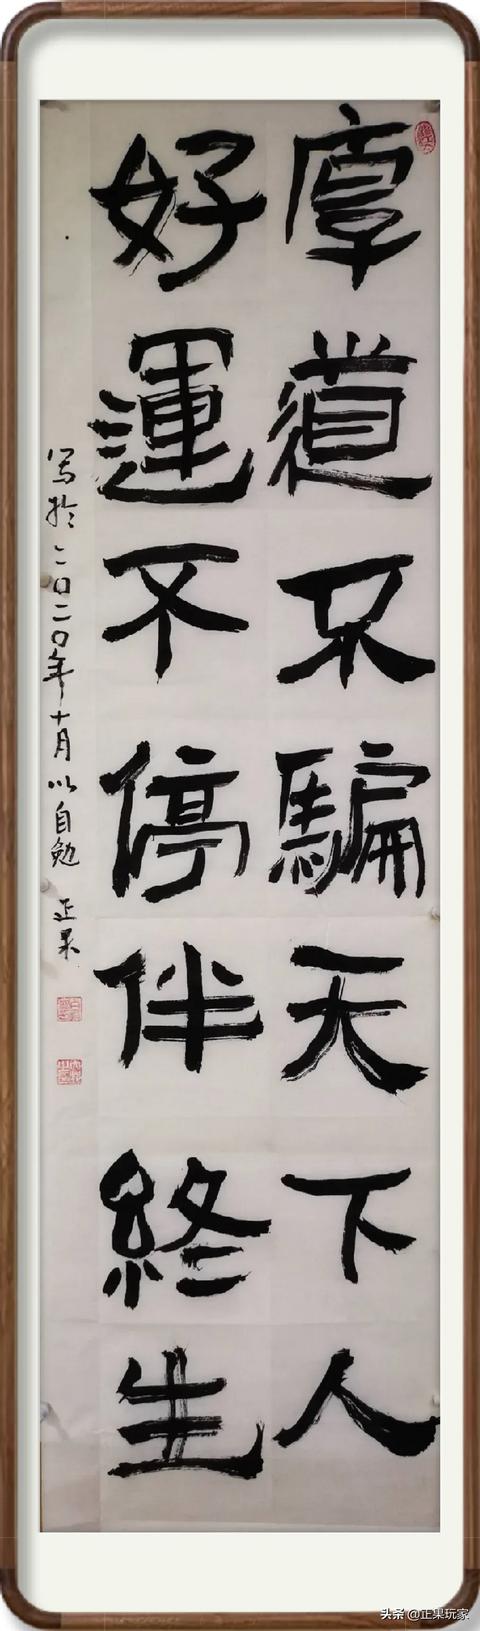 厚道不騙天下人
好運不停伴終生
写於二〇二〇年十月以自勉 正果
头条 @正果玩家